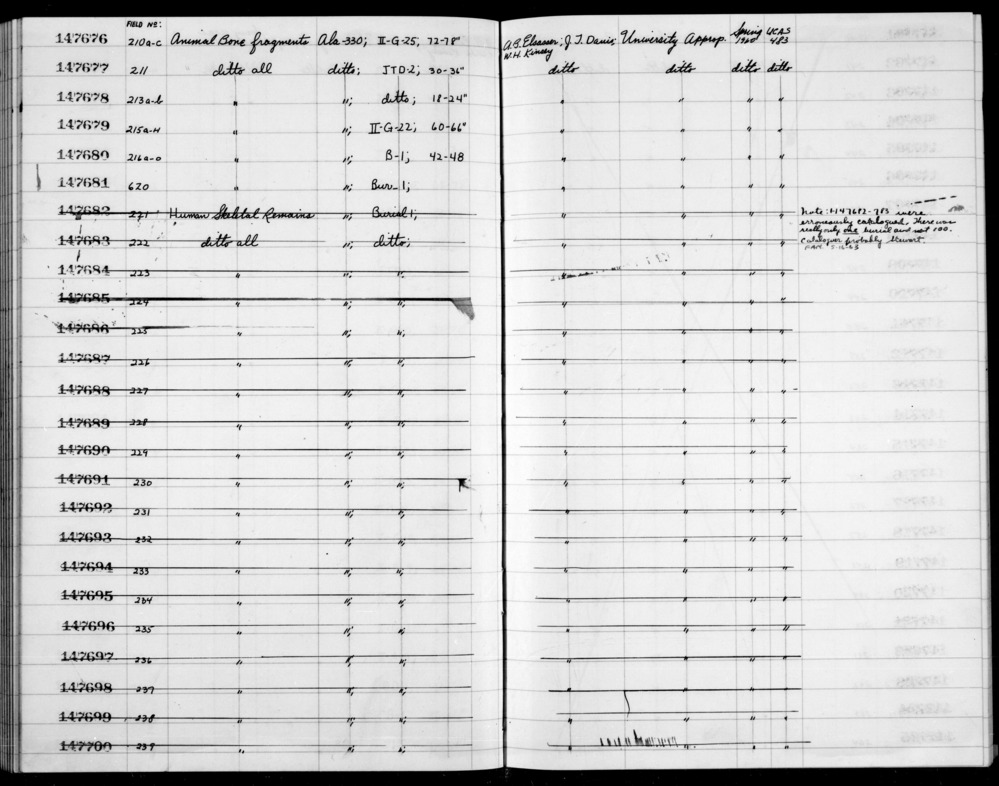 FIELD Nº:
147676 210a-c Animal Bone fragments Ala-330; II-G-25, 72-78" A.B. Elsasser; J.T. Davis; University Approp. Spring 1960 UCAS 483
W.H. Kinsey
147677 211 ditto all ditto; JTD-2; 30-36" ditto ditto ditto ditto
147678 213a-b " "; ditto; 18-24" " " " "
147679 215a-H " "; II-G-22; 60-66" " " " "
147680 216a-o " "; B-1; 42-48 " " " "
147681 620 " "; Bur. 1; " " " "
147682 221 Human Skeletal Remains "; Burial 1; " " " "
Note: 147682-783 were
erroneously catalogued. There was
really only one burial and not 100.
Cataloguer probably Stewart.
147683 222 ditto all "; ditto; " " " "
147684 223 " "; "; " " " "
147685 224 " "; "; " " " "
147686 225 " "; "; " " " "
147687 226 " "; "; " " " "
147688 227 " "; "; " " " "
147689 228 " "; "; " " " "
147690 229 " "; "; " " " "
147691 230 " "; "; " " " "
147692 231 " "; "; " " " "
147693 232 " "; "; " " " "
147694 233 " "; "; " " " "
147695 234 " "; "; " " " "
147696 235 " "; "; " " " "
147697 236 " "; "; " " " "
147698 237 " "; "; " " " "
147699 238 " "; "; " " " "
147700 239 " "; "; " " " "